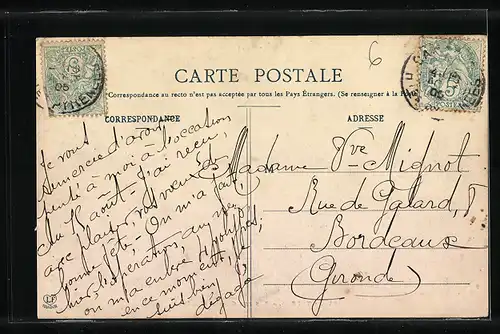 CARTE POSTALE
Correspondance au recto n'est pas acceptée par tous les Pays Étrangers. (Se renseigner à la
CORRESPONDANCE
ADRESSE
6
Je vous
remercie d'avoir
pensé à moi à l'occasion
du 15 août. J'ai reçu,
avec plaisir, vos vœux de
bonne fête. On m'a fait,
hier, l'opération, au
on m'a enlevé
en ce moment, je
suis bien
dégagé
Madame Vve Mignot
Rue de Galard, 5
Bordeaux
(Gironde)